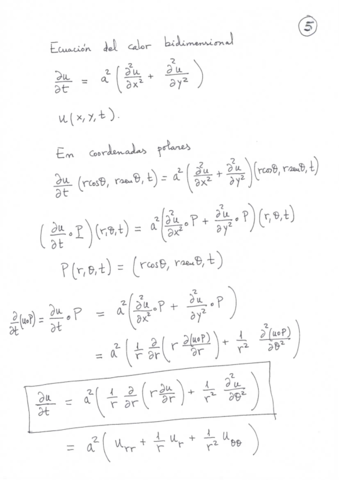 5
Ecuación del calor bidimensional
∂u/∂t = a²(∂²u/∂x² + ∂²u/∂y²)
u(x,y,t).
En coordenadas polares
∂u/∂t (rcosθ, rsenθ, t) = a²(∂²u/∂x² + ∂²u/∂y²)(rcosθ, rsenθ, t)
(∂u/∂t ∘ P)(r,θ,t) = a²(∂²u/∂x² ∘ P + ∂²u/∂y² ∘ P)(r,θ,t)
P(r,θ,t) = (rcosθ, rsenθ, t)
∂/∂t (u∘P) = ∂u/∂t ∘ P = a²(∂²u/∂x² ∘ P + ∂²u/∂y² ∘ P)
= a²(1/r ∂/∂r (r ∂(u∘P)/∂r) + 1/r² ∂²(u∘P)/∂θ²)
∂u/∂t = a²(1/r ∂/∂r (r ∂u/∂r) + 1/r² ∂²u/∂θ²)
= a²(u_rr + 1/r u_r + 1/r² u_θθ)